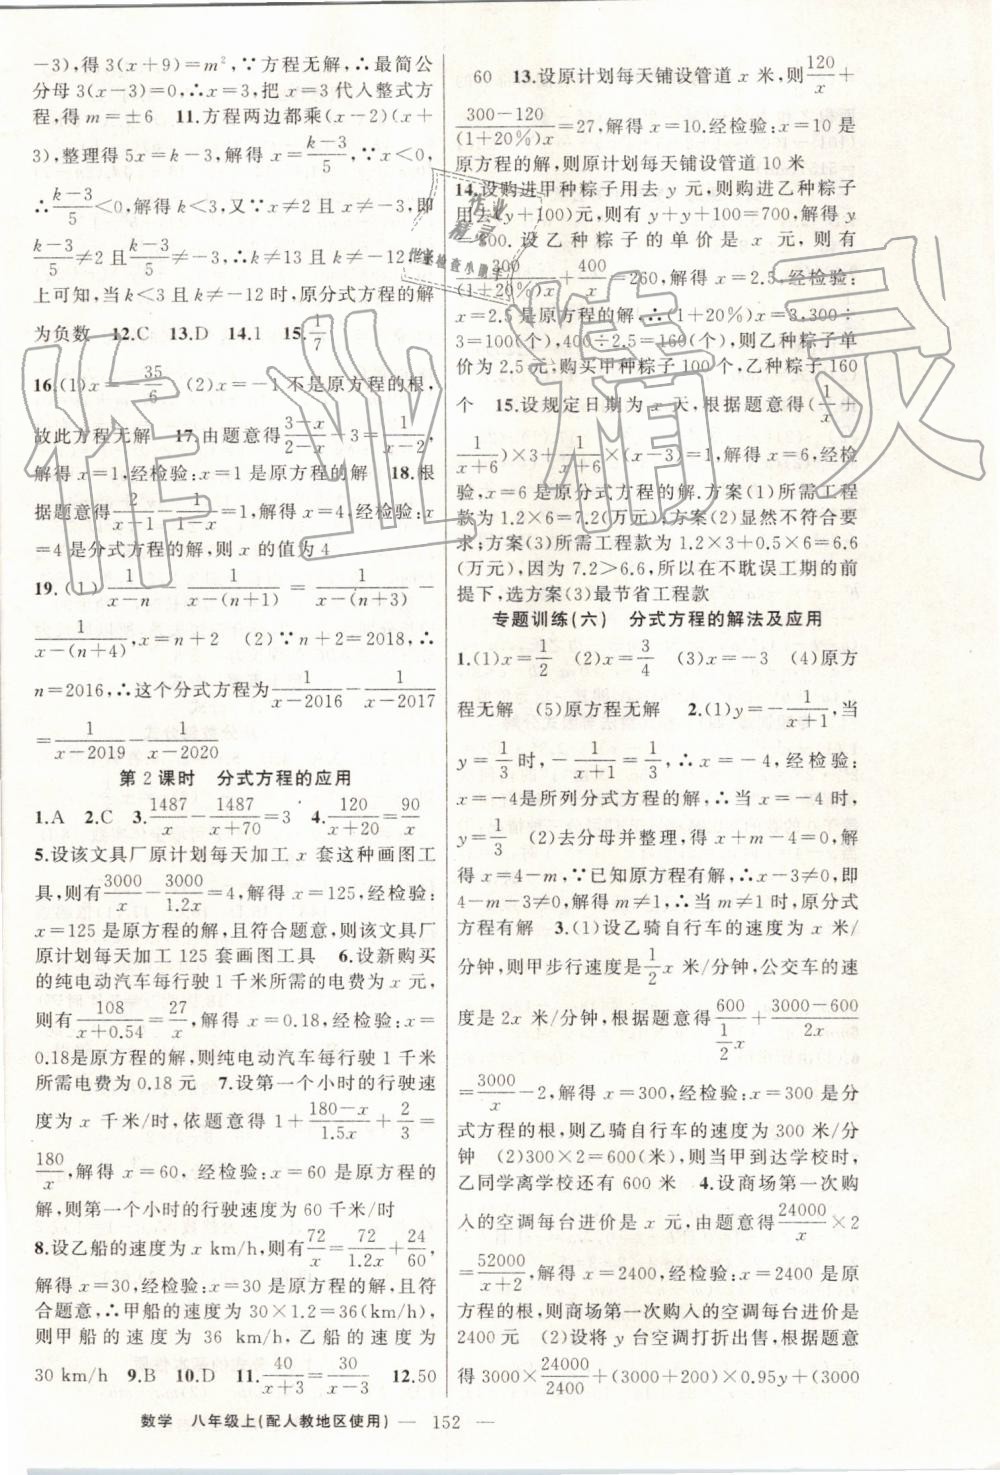 -3),得3(x+9)=m²,∵方程无解,∴最简公
分母3(x-3)=0,∴x=3,把x=3代入整式方
程,得m=±6 11.方程两边都乘(x-2)(x+
3),整理得5x=k-3,解得x=(k-3)/5,∵x<0,
∴(k-3)/5<0,解得k<3,又∵x≠2且x≠-3,即
(k-3)/5≠2且(k-3)/5≠-3,∴k≠13且k≠-12,
上可知,当k<3且k≠-12时,原分式方程的解
为负数 12.C 13.D 14.1 15.1/7
16.(1)x=-35/6 (2)x=-1不是原方程的根,
故此方程无解 17.由题意得(3-x)/(2-x)-3=1/(x-2),
解得x=1,经检验:x=1是原方程的解 18.根
据题意得2/(x-1)-1/(1-x)=1,解得x=4,经检验:x
=4是分式方程的解,则x的值为4
19.(1)1/(x-n)-1/(x-(n+1))=1/(x-(n+3))-
1/(x-(n+4)),x=n+2 (2)∵n+2=2018,∴
n=2016,∴这个分式方程为1/(x-2016)-1/(x-2017)
=1/(x-2019)-1/(x-2020)
第2课时 分式方程的应用
1.A 2.C 3.1487/x-1487/(x+70)=3 4.120/(x+20)=90/x
5.设该文具厂原计划每天加工x套这种画图工
具,则有3000/x-3000/1.2x=4,解得x=125,经检验:
x=125是原方程的解,且符合题意,则该文具厂
原计划每天加工125套画图工具 6.设新购买
的纯电动汽车每行驶1千米所需的电费为x元,
则有108/(x+0.54)=27/x,解得x=0.18,经检验:x=
0.18是原方程的解,则纯电动汽车每行驶1千米
所需电费为0.18元 7.设第一个小时的行驶速
度为x千米/时,依题意得1+(180-x)/1.5x+2/3=
180/x,解得x=60,经检验:x=60是原方程的
解,则第一个小时的行驶速度为60千米/时
8.设乙船的速度为x km/h,则有72/x=72/1.2x+24/60,
解得x=30,经检验:x=30是原方程的解,且符
合题意,∴甲船的速度为30×1.2=36(km/h),
则甲船的速度为36 km/h,乙船的速度为
30 km/h 9.B 10.D 11.40/(x+3)=30/(x-3) 12.50
60 13.设原计划每天铺设管道x米,则120/x+
(300-120)/((1+20%)x)=27,解得x=10.经检验:x=10是
原方程的解,则原计划每天铺设管道10米
14.设购进甲种粽子用去y元,则购进乙种粽子
用去(y+100)元,则有y+y+100=700,解得y
=300.设乙种粽子的单价是x元,则有
300/((1+20%)x)+400/x=260,解得x=2.5.经检验:
x=2.5是原方程的解,∴(1+20%)x=3,300÷
3=100(个),400÷2.5=160(个),则乙种粽子单
价为2.5元,购买甲种粽子100个,乙种粽子160
个 15.设规定日期为x天,根据题意得(1/x+
1/(x+6))×3+1/(x+6)×(x-3)=1,解得x=6,经检
验,x=6是原分式方程的解.方案(1)所需工程
款为1.2×6=7.2(万元),方案(2)显然不符合要
求;方案(3)所需工程款为1.2×3+0.5×6=6.6
(万元),因为7.2>6.6,所以在不耽误工期的前
提下,选方案(3)最节省工程款
专题训练(六) 分式方程的解法及应用
1.(1)x=1/2 (2)x=3/4 (3)x=-3 (4)原方
程无解 (5)原方程无解 2.(1)y=-1/(x+1),当
y=1/3时,-1/(x+1)=1/3,∴x=-4,经检验:
x=-4是所列分式方程的解,∴当x=-4时,
y=1/3 (2)去分母并整理,得x+m-4=0,解
得x=4-m,∵已知原方程有解,∴x-3≠0,即
4-m-3≠0,解得m≠1,∴当m≠1时,原分式
方程有解 3.(1)设乙骑自行车的速度为x米/
分钟,则甲步行速度是1/2x米/分钟,公交车的速
度是2x米/分钟,根据题意得600/(1/2x)+(3000-600)/2x
=3000/x-2,解得x=300,经检验:x=300是分
式方程的根,则乙骑自行车的速度为300米/分
钟 (2)300×2=600(米),则当甲到达学校时,
乙同学离学校还有600米 4.设商场第一次购
入的空调每台进价是x元,由题意得24000/x×2
=52000/(x+2),解得x=2400,经检验:x=2400是原
方程的根,则商场第一次购入的空调每台进价是
2400元 (2)设将y台空调打折出售,根据题意
得3000×24000/2400+(3000+200)×0.95y+(3000
数学 八年级上(配人教地区使用) — 152 —
作业精灵
作业
精灵
作业检查小助手